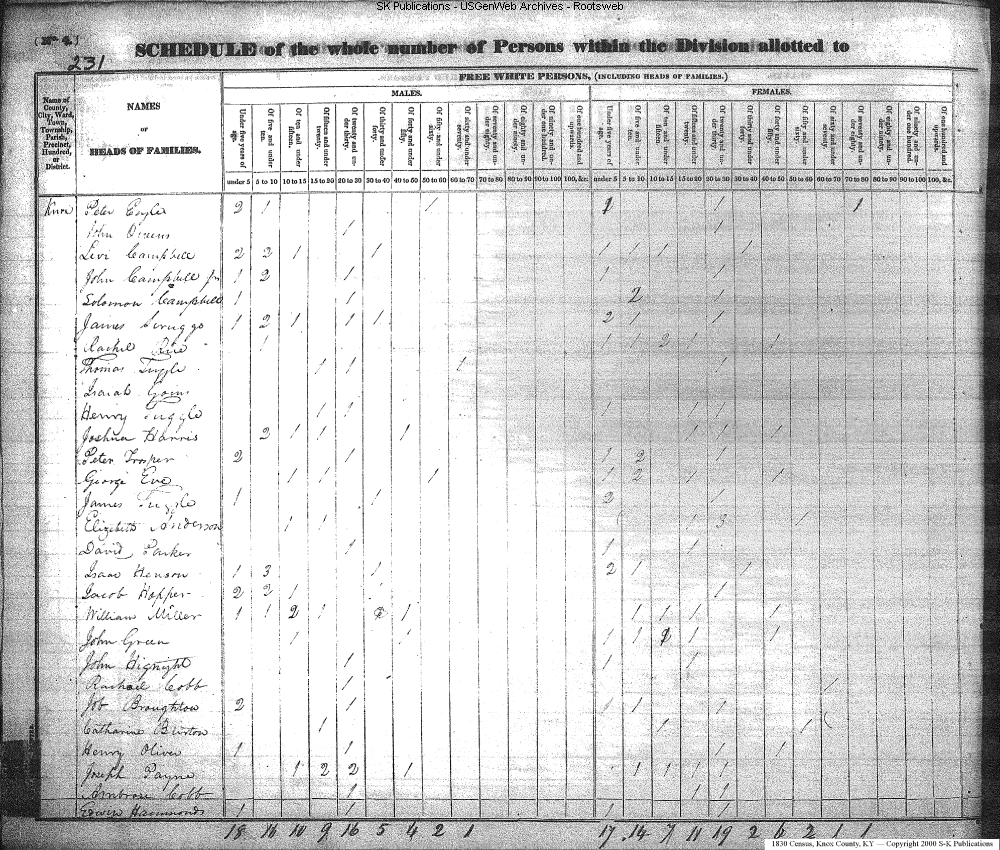 SK Publications - USGenWeb Archives - Rootsweb
(No 4.)
231
SCHEDULE of the whole number of Persons within the Division allotted to
FREE WHITE PERSONS, (INCLUDING HEADS OF FAMILIES.)
MALES. FEMALES.
Name of County, City, Ward, Town, Township, Parish, Precinct, Hundred, or District.
NAMES
OF
HEADS OF FAMILIES.
Under five years of age. Of five and under ten. Of ten and under fifteen. Of fifteen and under twenty. Of twenty and under thirty. Of thirty and under forty. Of forty and under fifty. Of fifty and under sixty. Of sixty and under seventy. Of seventy and under eighty. Of eighty and under ninety. Of ninety and under one hundred. Of one hundred and upwards. Under five years of age. Of five and under ten. Of ten and under fifteen. Of fifteen and under twenty. Of twenty and under thirty. Of thirty and under forty. Of forty and under fifty. Of fifty and under sixty. Of sixty and under seventy. Of seventy and under eighty. Of eighty and under ninety. Of ninety and under one hundred. Of one hundred and upwards.
under 5 5 to 10 10 to 15 15 to 20 20 to 30 30 to 40 40 to 50 50 to 60 60 to 70 70 to 80 80 to 90 90 to 100 100, &c. under 5 5 to 10 10 to 15 15 to 20 20 to 30 30 to 40 40 to 50 50 to 60 60 to 70 70 to 80 80 to 90 90 to 100 100, &c.
Knox Peter 2 1 1 1 1 1
John Owens 1 1
Levi Campbell 2 2 1 1 1 1 1 1
John Campbell jr 1 2 1 1 1
Solomon Campbell 1 1 2 1
James Scruggs 1 2 1 1 1 2 1 1
Rachel 1 1 1 2 1 1
Thomas Tuggle 1 1 1 1
Isaiah Goins
Henry Tuggle 1 1 1 1 1
Joshua Harris 2 1 1 1 1 1 1
Peter Prosper 2 1 1 2 1
George Eve 1 1 1 1 2 1 1
James Tuggle 1 1 2 1
Elizabeth Anderson 1 1 1 3 1
David Parker 1 1 1
Isaac Henson 1 3 1 2 1 1
Jacob Hopper 2 2 1 1
William Miller 1 1 2 1 1 1 1 1 1
John Green 1 1 1 1 1 1
John Hignight 1 1 1
Rachael Cobb 1 1
Job Broughton 2 1 1 1 1
Catharine Burton 1 1 1
Henry Oliver 1 1 1 1
Joseph Payne 1 2 2 1 1 1 1 1
Ambrose Cobb 1 1 1
Edwin Hammonds 1 1 1 1
18 16 10 9 16 5 4 2 1 17 14 7 11 19 2 6 2 1 1
1830 Census, Knox County, KY — Copyright 2000 S-K Publications